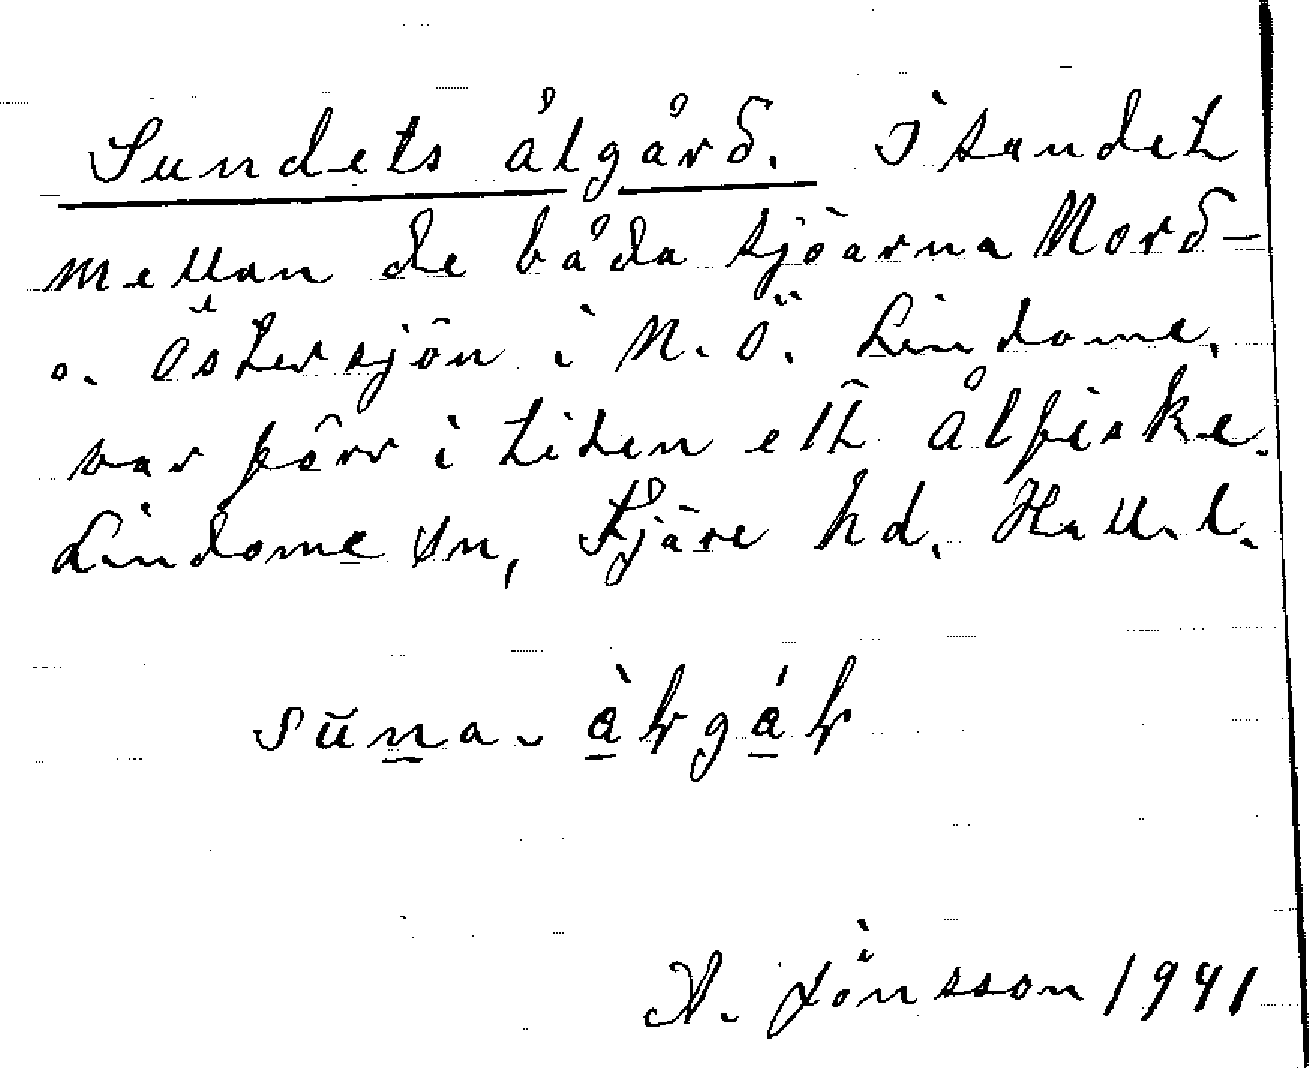 Sundets ålgård. I sundet
mellan de båda sjöarna Nord-
o. Östersjön i N. Ö. Lindome,
var förr i tiden ett ålfiske.
Lindome sn, Fjäre hd. Hall. l.
A. Jönsson 1941